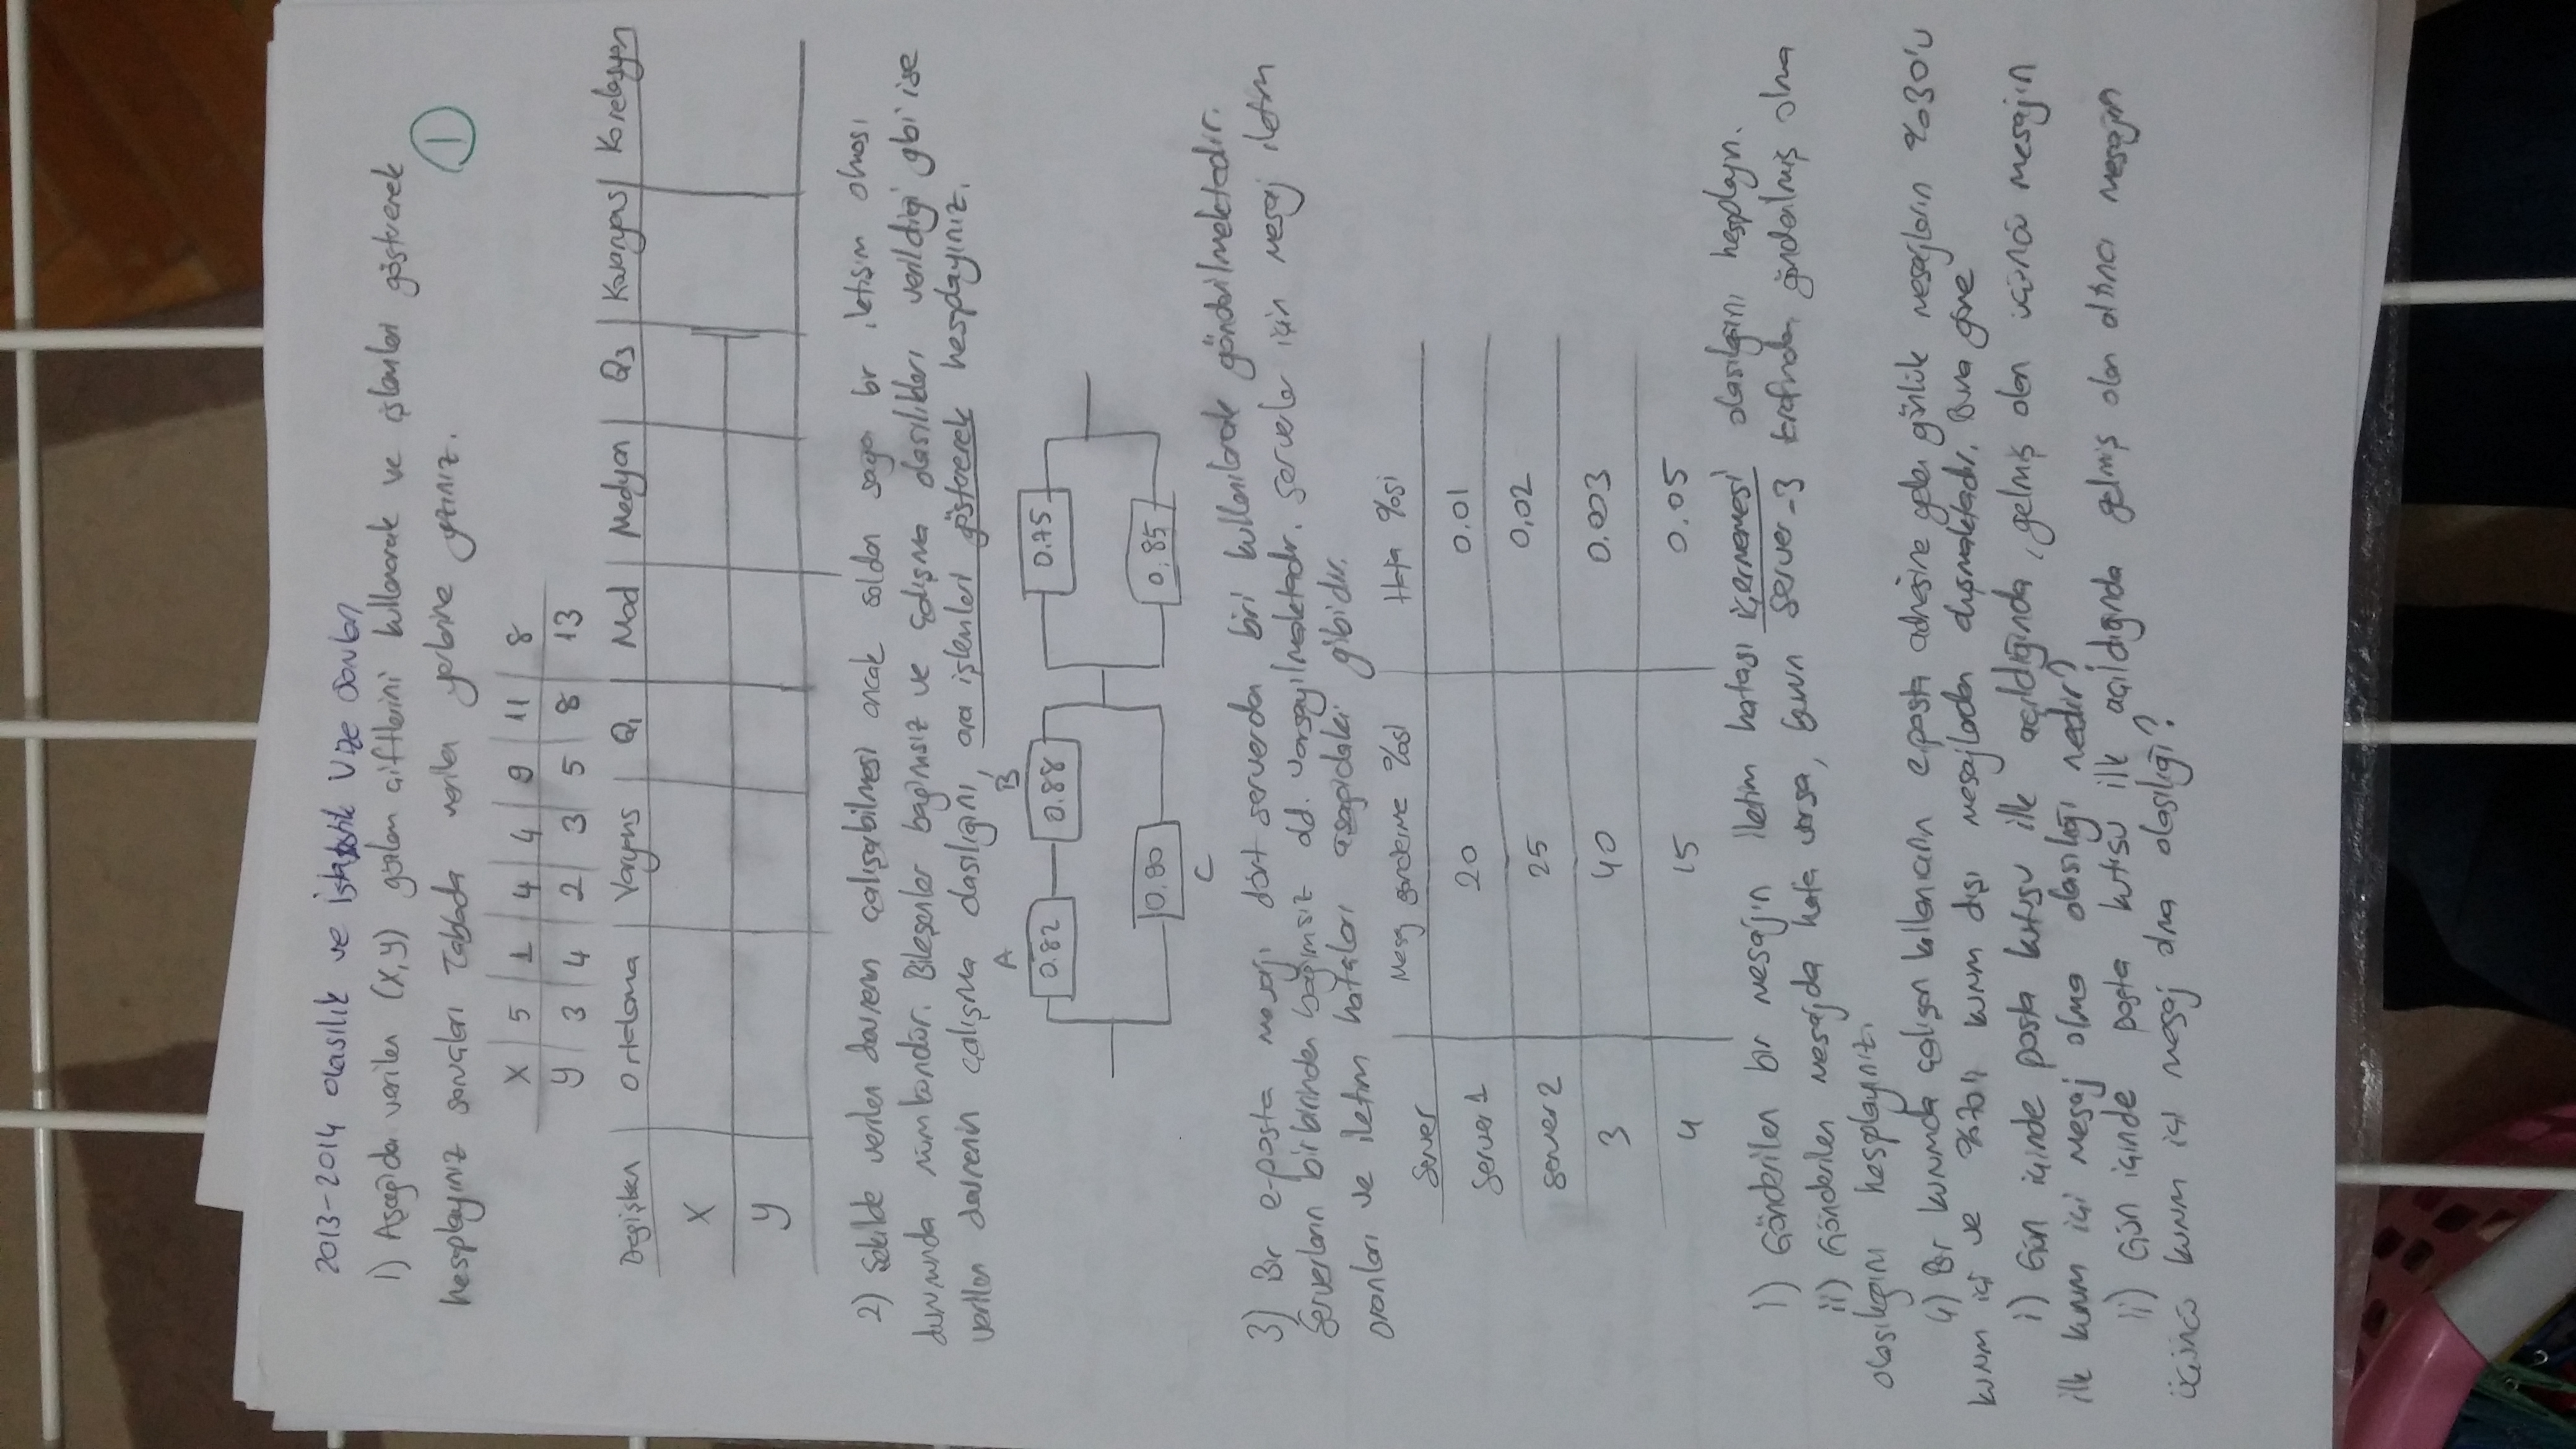 2013-2014 olasılık ve İstatistik Vize Soruları
1) Aşağıda verilen (x,y) gözlem çiftlerini kullanarak ve işlemleri göstererek
hesaplayınız sonuçları Tabloda verilen yerlerine yazınız.
1
X 5 1 4 4 9 11 8
y 3 4 2 3 5 8 13
Değişken Ortalama Varyans Q1 Mod Medyan Q3 Kovaryans Korelasyon
X
y
2) Şekilde verilen devrenin çalışabilmesi ancak soldan sağa bir iletişim olması
durumunda mümkündür. Bileşenler bağımsız ve çalışma olasılıkları verildiği gibi ise
verilen devrenin çalışma olasılığını, ara işlemleri göstererek hesaplayınız.
A B
0.82 0.88 0.75
0.90 0.85
C
3) Bir e-posta mesajı dört serverdan biri kullanılarak gönderilmektedir.
Serverların birbirinden bağımsız old. varsayılmaktadır. Serverler için mesaj iletim
oranları ve iletim hataları aşağıdaki gibidir.
Server Mesaj gönderme %si Hata %si
Server 1 20 0.01
server 2 25 0,02
3 40 0.003
4 15 0.05
i) Gönderilen bir mesajın iletim hatası içermemesi olasılığını hesaplayın.
ii) Gönderilen mesajda hata varsa, bunun server-3 tarafından gönderilmiş olma
olasılığını hesaplayınız.
4) Bir kurumda çalışan kullanıcının e.posta adresine gelen günlük mesajların %30'u
kurum içi ve %70'i kurum dışı mesajlardan oluşmaktadır. Buna göre
i) Gün içinde posta kutusu ilk açıldığında, gelmiş olan üçüncü mesajın
ilk kurum içi mesaj olma olasılığı nedir?
ii) Gün içinde posta kutusu ilk açıldığında gelmiş olan altıncı mesajın
üçüncü kurum içi mesaj olma olasılığı?